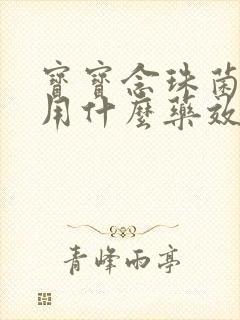 寶寶念珠菌
用什麼藥效
青峰雨亭